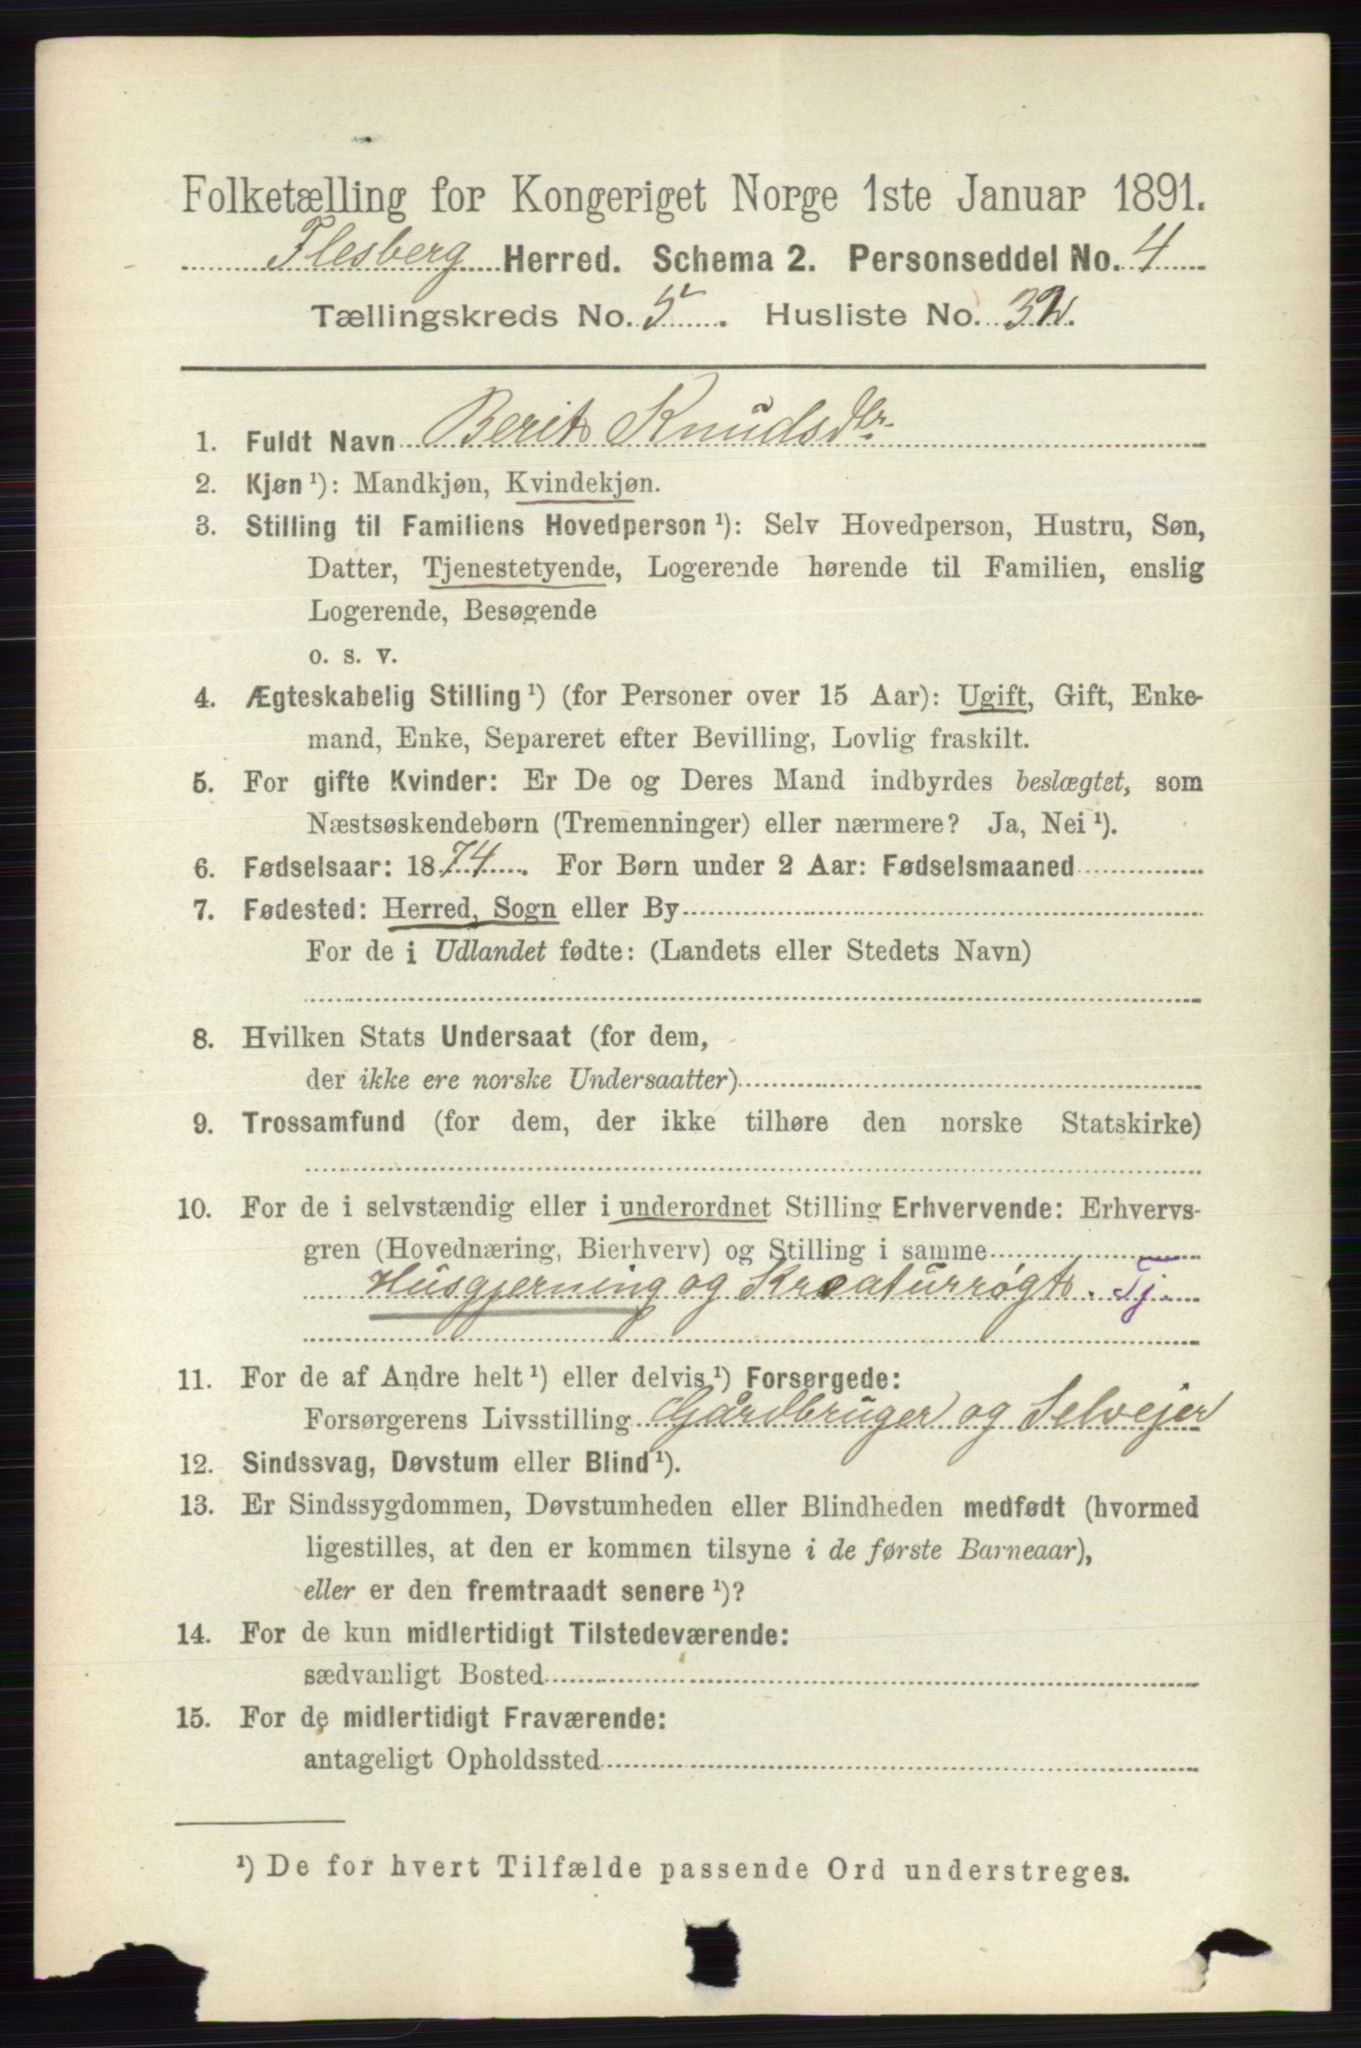 Folketælling for Kongeriget Norge 1ste Januar 1891.
Flesberg Herred. Schema 2. Personseddel No. 4
Tællingskreds No. 5. Husliste No. 32.
1. Fuldt Navn Berit Knudsdtr.
2. Kjøn ¹): Mandkjøn, Kvindekjøn.
3. Stilling til Familiens Hovedperson ¹): Selv Hovedperson, Hustru, Søn,
Datter, Tjenestetyende, Logerende hørende til Familien, enslig
Logerende, Besøgende
o. s. v.
4. Ægteskabelig Stilling ¹) (for Personer over 15 Aar): Ugift, Gift, Enke-
mand, Enke, Separeret efter Bevilling, Lovlig fraskilt.
5. For gifte Kvinder: Er De og Deres Mand indbyrdes beslægtet, som
Næstsøskendebørn (Tremenninger) eller nærmere? Ja, Nei ¹).
6. Fødselsaar: 1874. For Børn under 2 Aar: Fødselsmaaned
7. Fødested: Herred, Sogn eller By
For de i Udlandet fødte: (Landets eller Stedets Navn)
8. Hvilken Stats Undersaat (for dem,
der ikke ere norske Undersaatter)
9. Trossamfund (for dem, der ikke tilhøre den norske Statskirke)
10. For de i selvstændig eller i underordnet Stilling Erhvervende: Erhvervs-
gren (Hovednæring, Bierhverv) og Stilling i samme
Husgjerning og Kreaturrøgt. Tj.
11. For de af Andre helt ¹) eller delvis ¹) Forsørgede:
Forsørgerens Livsstilling Gårdbruger og Selvejer
12. Sindssvag, Døvstum eller Blind ¹).
13. Er Sindssygdommen, Døvstumheden eller Blindheden medfødt (hvormed
ligestilles, at den er kommen tilsyne i de første Barneaar),
eller er den fremtraadt senere ¹)?
14. For de kun midlertidigt Tilstedeværende:
sædvanligt Bosted
15. For de midlertidigt Fraværende:
antageligt Opholdssted
¹) De for hvert Tilfælde passende Ord understreges.